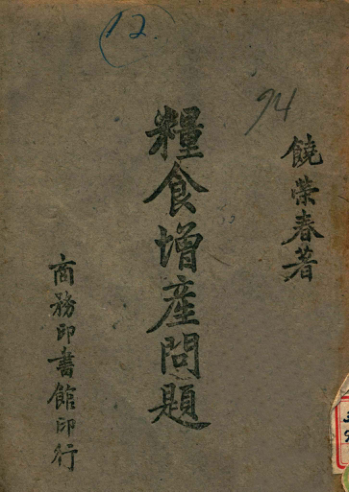 12.
94
饒榮春著
糧食增產問題
商務印書館印行